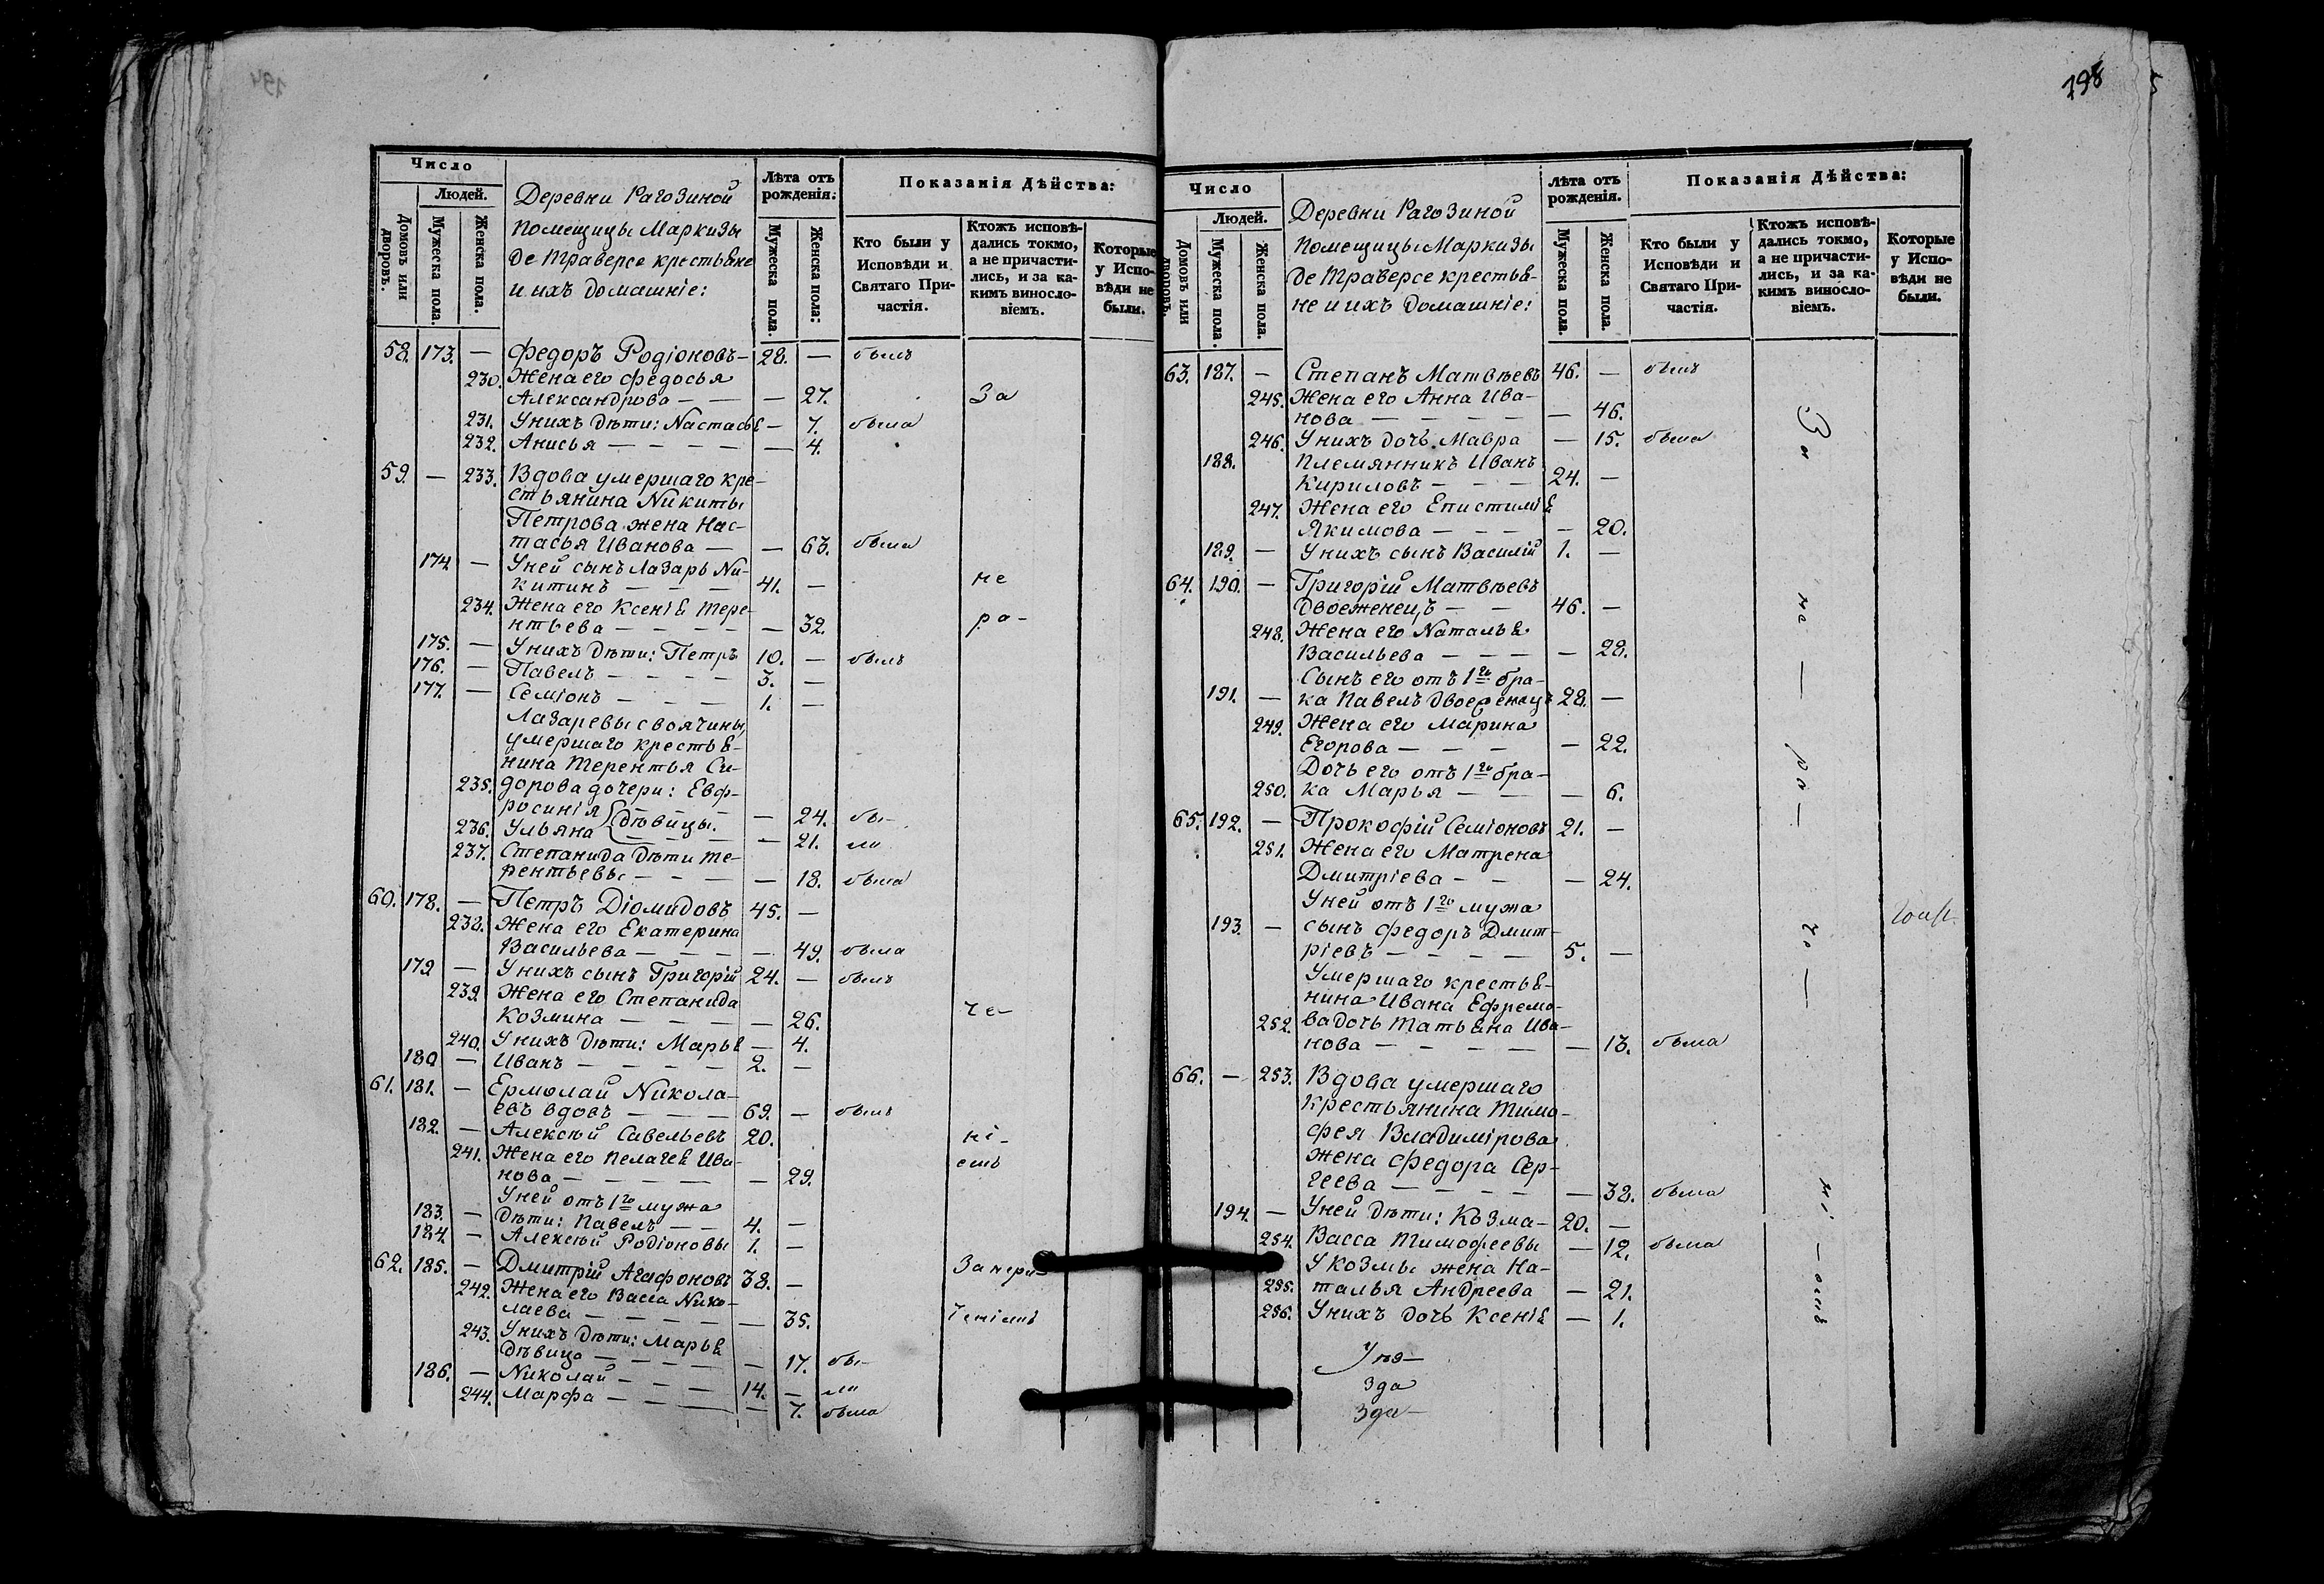 198
Число
Людей.
Домовъ или дворовъ.
Мужеска пола.
Женска пола.
Деревни Рагозиной
помещицы Маркизы
де Траверсе крестьяне
и ихъ домашніе:
Лѣта отъ рожденія:
Мужеска пола.
Женска пола:
Показанія Дѣйства:
Кто были у Исповѣди и Святаго Причастія.
Ктожъ исповѣдались токмо, а не причастились, и за какимъ винословіемъ.
Которые у Исповѣди не были.
58. 173. — Федоръ Родіоновъ — 28. — былъ
230. Жена его Федосья
Александрова — — — 27. За
231. У нихъ дѣти: Настасья — 7. была
232. Анисья — — — — 4.
59. — 233. Вдова умершаго кре-
стьянина Никиты
Петрова жена Нас-
тасья Иванова — — 63. была
174. — У ней сынъ Лазарь Ни-
китинъ — — — 41. — не
234. Жена его Ксенія Тере-
нтьева — — — — 32. ра-
175. — У нихъ дѣти: Петръ 10. — былъ
176. — Павелъ — — — — 3. —
177. — Семіонъ — — — 1. —
Лазаревы своячины,
умершаго крестья-
нина Терентья Си-
235. дорова дочери: Евф-
росинія — — 24. бы-
236. Ульяна дѣвицы. — 21. ли
237. Степанида дѣти Те-
рентьевы — — — — 18. была
60. 178. — Петръ Діомидовъ 45. —
238. Жена его Екатерина
Васильева — — — — 49. была
179. — У нихъ сынъ Григорій 24. — былъ
239. Жена его Степанида
Козмина — — — — 26. че-
240. У нихъ дѣти: Марья — 4.
180. — Иванъ — — — — 2. —
61. 181. — Ермолай Никола-
евъ вдовъ — — — 69. — былъ
182. — Алексѣй Савельевъ 20. ні-
241. Жена его Пелагея Ива-
нова — — — — — 29. емъ
У ней отъ 1го мужа
183. — дѣти: Павелъ — — 4. —
184. — Алексѣй Родіоновы 1. —
62. 185. — Дмитрій Агафоновъ 38. — За нера-
242. Жена его Васса Нико-
лаева — — — — — 35.ченіемъ
243. У нихъ дѣти: Марья
дѣвица — — — — — 17. бы-
186. — Николай — — — 14. — ли
244. Марфа — — — — 7. была
Число
Людей.
Домовъ или дворовъ.
Мужеска пола.
Женска пола.
Деревни Рагозиной
помещицы Маркизы
де Траверсе крестья-
не и ихъ домашніе:
Лѣта отъ рожденія.
Мужеска пола.
Женска пола.
Показанія Дѣйства:
Кто были у Исповѣди и Святаго Причастія.
Ктожъ исповѣдались токмо, а не причастились, и за какимъ винословіемъ.
Которые у Исповѣди не были.
63. 187. — Степанъ Матвѣевъ 46. — былъ
245. Жена его Анна Ива-
нова — — — — — 46.
246. У нихъ дочь Мавра — 15. была
188. Племянникъ Иванъ
Кириловъ — — — 24. —
247. Жена его Епистимія
Якимова — — — — 20.
189. — У нихъ сынъ Василій 1. —
64. 190. — Григорій Матвѣевъ
двоеженецъ — — 46. —
248. Жена его Наталья
Васильева — — — — 28.
Сынъ его отъ 1го бра-
191. — ка Павелъ двоеженецъ 28. —
249. Жена его Марина
Егорова — — — — 22.
Дочь его отъ 1го бра-
250. ка Марья — — — 6.
65. 192. — Прокофій Семіоновъ 21. —
251. Жена его Матрена
Дмитріева — — — 24.
У ней отъ 1го мужа
193. — сынъ Федоръ Дмит-
ріевъ — — — — 5. —
Умершаго крестья-
нина Ивана Ефремо-
252. ва дочь Татьяна Ива-
нова — — — — — 13. была
66. — 253. Вдова умершаго
крестьянина Тимо-
фея Владимірова
жена Федора Сер-
геева — — — — — 38. была
194. — У ней дѣти: Козма — 20. —
254. Васса Тимофеевы — 12. была
У Козмы жена На-
255. талья Андреева — 21.
256. У нихъ дочь Ксенія — 1.
За
не — ра —
че —
ні — емъ
Уѣз-